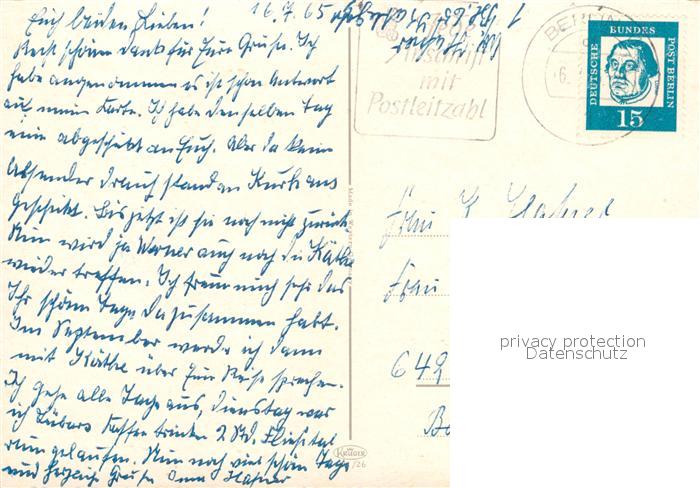 Euch beiden Lieben! 16.7.65
Recht schönen Dank für Eure Grüße. Ich
habe angenommen es ist schon Antwort
auf mein Karte. Ich habe denselben Tag
eine abgeschickt an Euch. Aber da kein
Absender drauf stand an Kurhaus
geschickt. Bis jetzt ist sie noch nicht zurück
Nun wird ja Werner auch noch die Käthe
wieder treffen. Ich freue mich sehr das
Ihr schöne Tage da zusammen habt.
Im September werde ich dann
mit Käthe über Eure Reise sprechen.
Ich gehe alle Tage aus, Dienstag war
ich Lübars Kaffee trinken 2 Std. Fließtal
rum gelaufen. Nun noch viel schöne Tage
und herzliche Grüße
Anschrift
mit
Postleitzahl
BERLIN
DEUTSCHE BUNDES POST BERLIN
15
Frau
Frau
642
KRÜGER
/26
privacy protection
Datenschutz